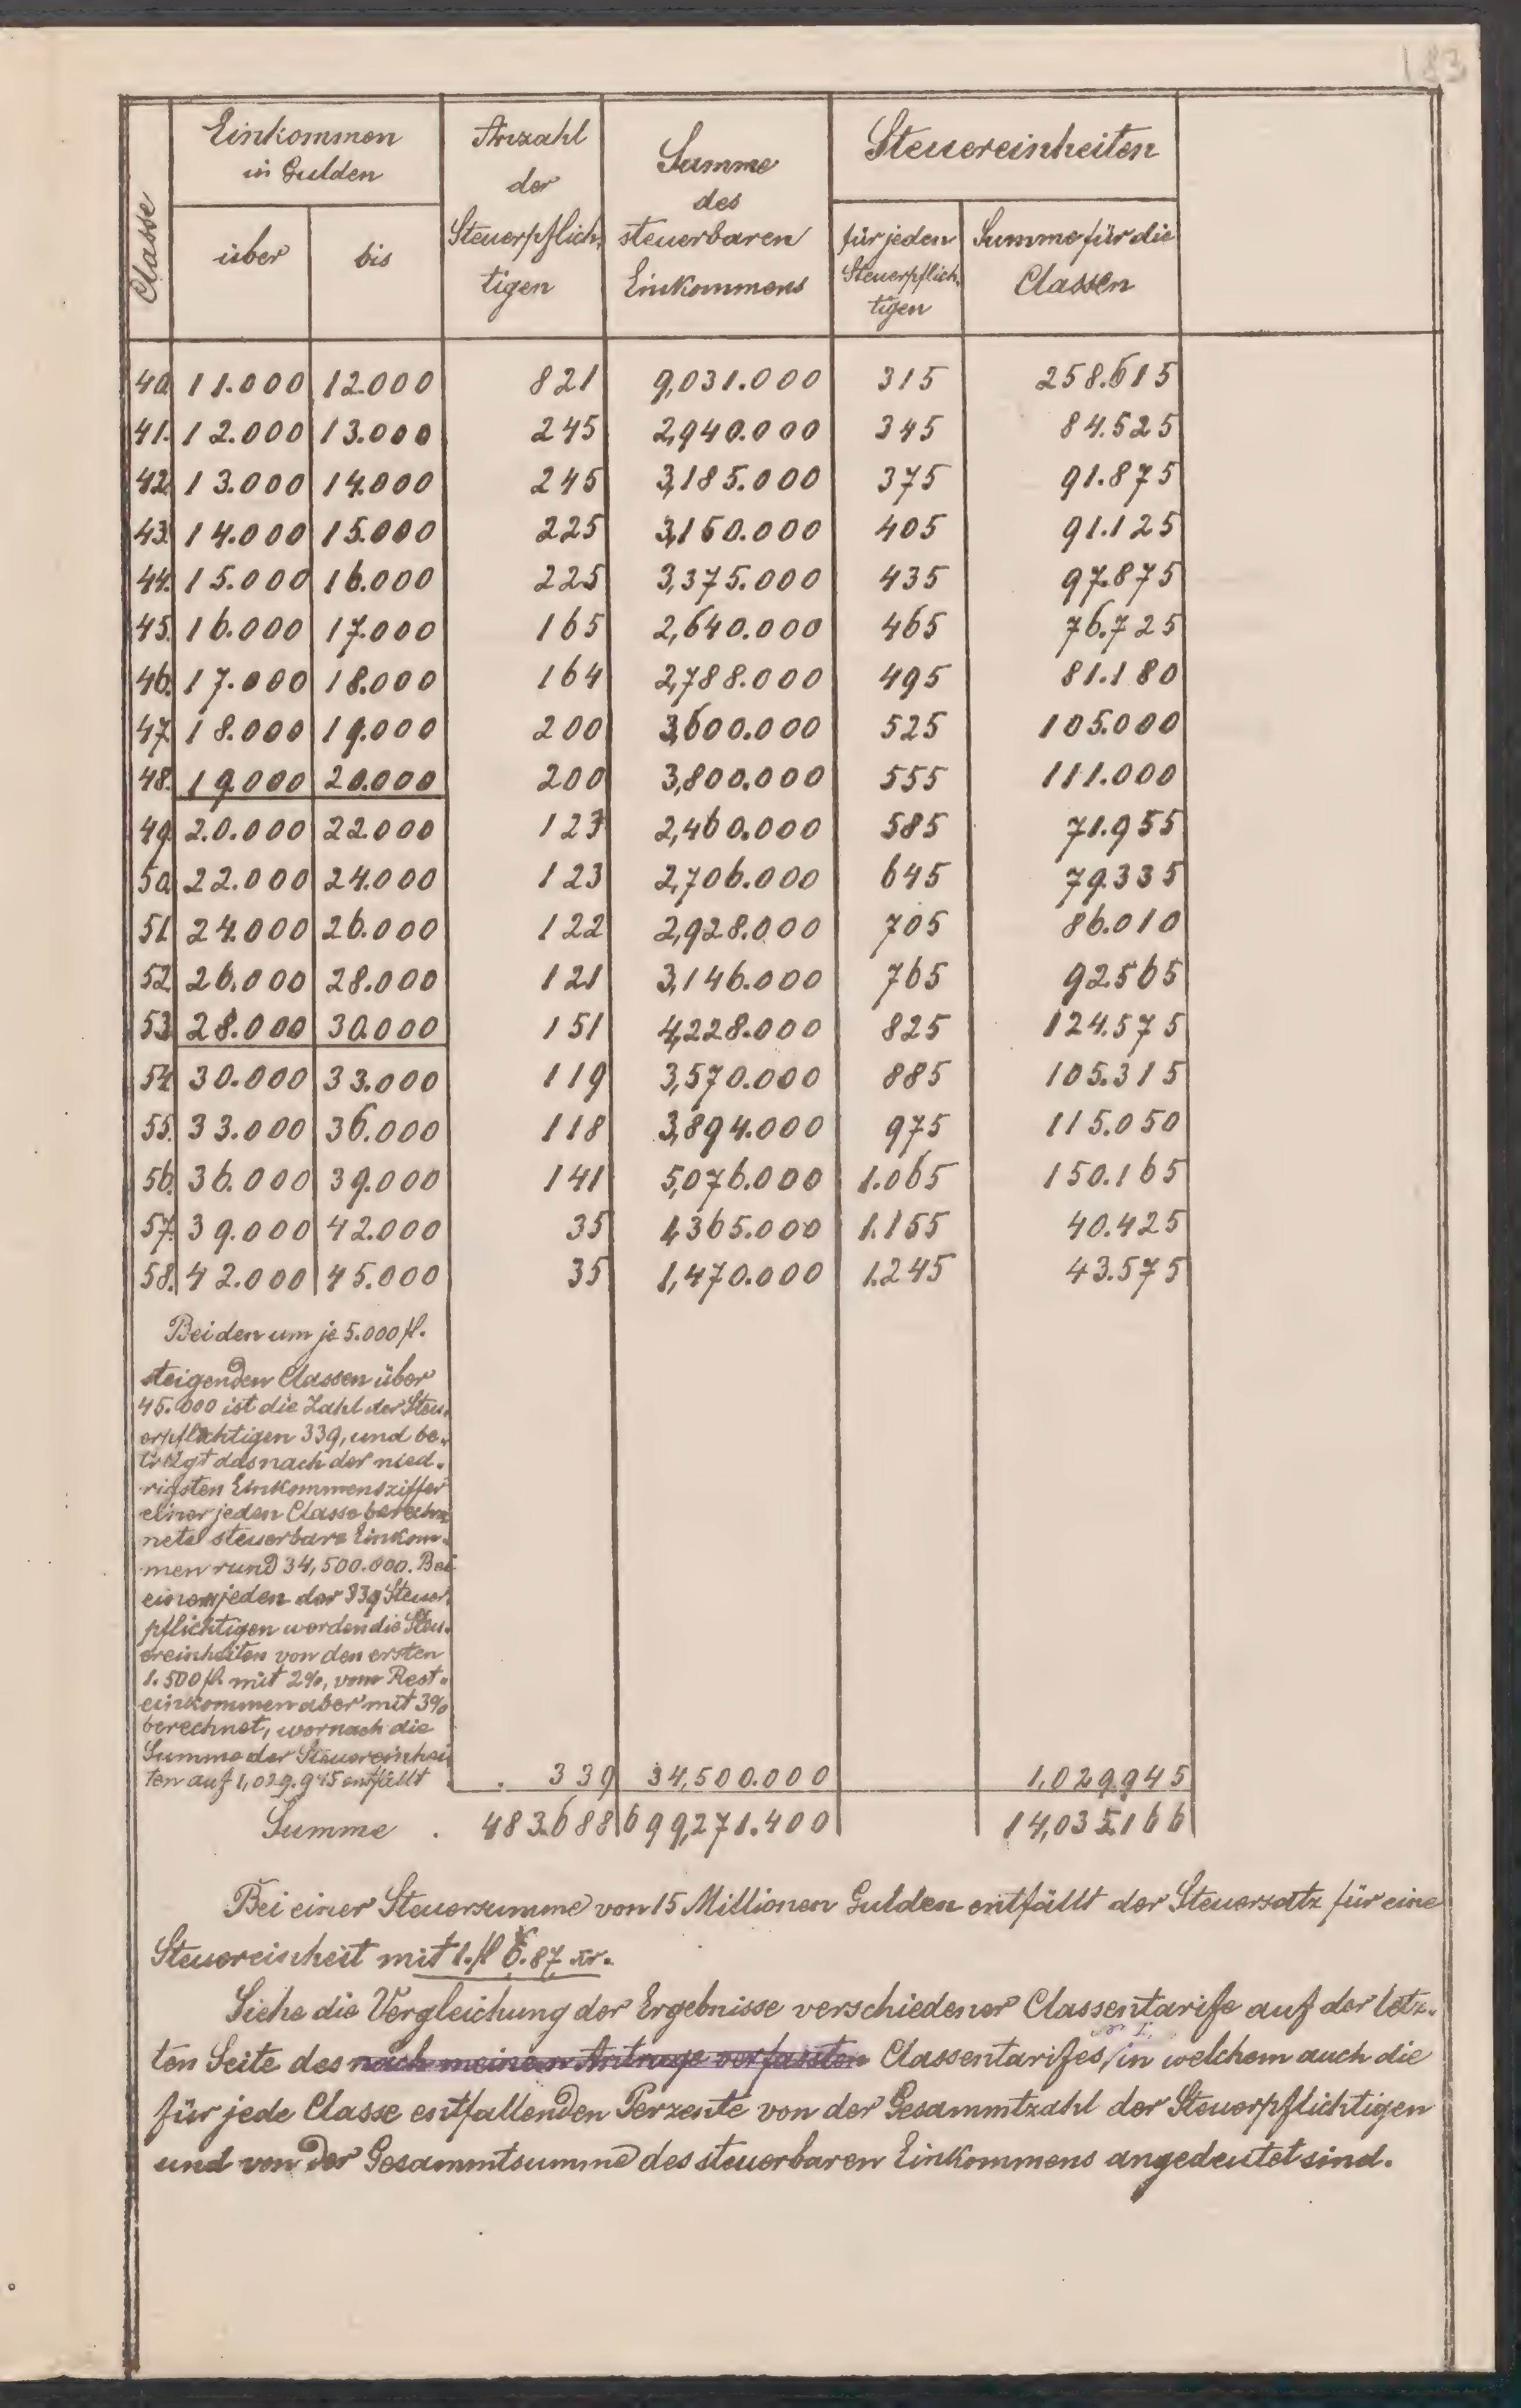 183
Classe
Einkommen
in Gulden
über
bis
Anzahl
der
Steuerpflich-
tigen
Summe
des
steuerbaren
Einkommens
Steuereinheiten
für jeden
Steuerpflich-
tigen
Summe für die
Classen
40. 11.000 12.000 821 9,031.000 315 258.615
41. 12.000 13.000 245 2,940.000 345 84.525
42. 13.000 14.000 245 3,185.000 375 91.875
43. 14.000 15.000 225 3,150.000 405 91.125
44. 15.000 16.000 225 3,375.000 435 97.875
45. 16.000 17.000 165 2,640.000 465 76.725
46. 17.000 18.000 164 2,788.000 495 81.180
47. 18.000 19.000 200 3,600.000 525 105.000
48. 19.000 20.000 200 3,800.000 555 111.000
49. 20.000 22.000 123 2,460.000 585 71.955
50. 22.000 24.000 123 2,706.000 645 79.335
51. 24.000 26.000 122 2,928.000 705 86.010
52. 26.000 28.000 121 3,146.000 765 92.565
53. 28.000 30.000 151 4,228.000 825 124.575
54. 30.000 33.000 119 3,570.000 885 105.315
55. 33.000 36.000 118 3,894.000 975 115.050
56. 36.000 39.000 141 5,076.000 1.065 150.165
57. 39.000 42.000 35 1,365.000 1.155 40.425
58. 42.000 45.000 35 1,470.000 1.245 43.575
Bei den um je 5.000 fl.
steigenden Classen über
45.000 ist die Zahl der Steu-
erpflichtigen 339, und be-
trägt das nach der nied-
rigsten Einkommensziffer
einer jeden Classe berech-
nete steuerbare Einkom-
men rund 34,500.000. Bei
einem jeden der 339 Steuer-
pflichtigen werden die Steu-
ereinheiten von den ersten
1.500 fl. mit 2%, vom Rest-
einkommen aber mit 3%
berechnet, wornach die
Summe der Steuereinhei-
ten auf 1,029.945 entfällt . . 339 34,500.000 1,029.945
Summe . 483.688 699,271.400 14,035.166
Bei einer Steuersumme von 15 Millionen Gulden entfällt der Steuersatz für eine
Steuereinheit mit 1. fl 6.87 xr.
Siehe die Vergleichung der Ergebnisse verschiedener Classentarife auf der letz-
ten Seite des nach meinem Antrage verfassten Classentarifes, in welchem auch die
für jede Classe entfallenden Perzente von der Gesammtzahl der Steuerpflichtigen
und von der Gesammtsumme des steuerbaren Einkommens angedeutet sind.